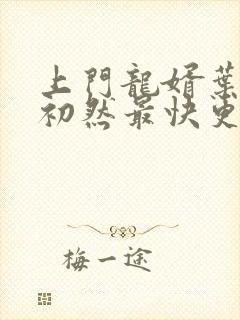 上門龍婿葉
初然最快更
梅一途